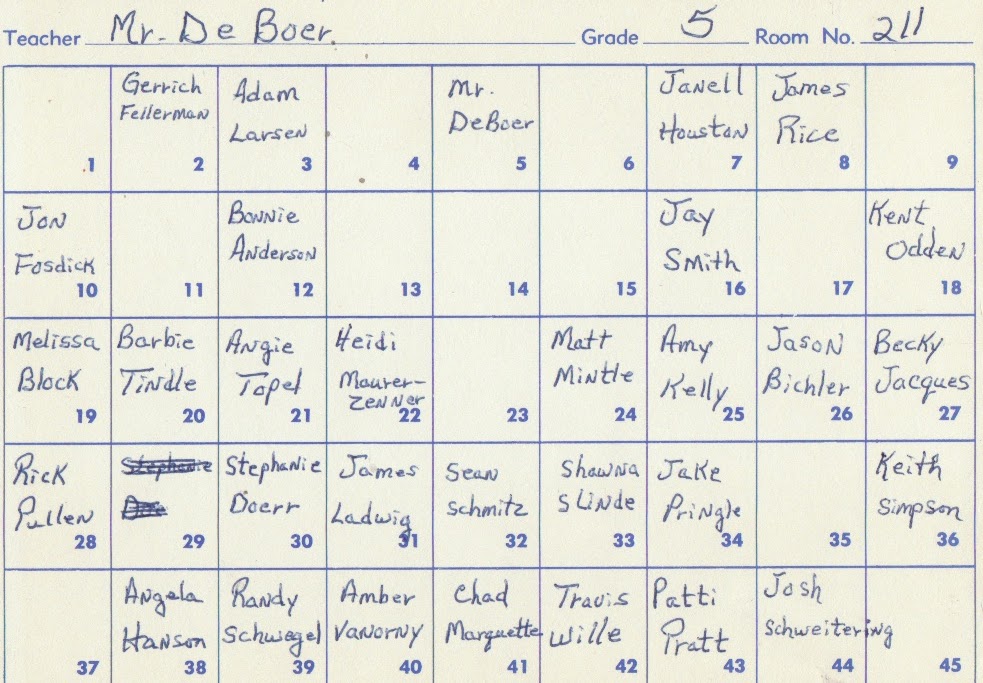 Teacher Mr. De Boer. Grade 5 Room No. 211
Gerrich Adam Mr. Janell James
Fellerman Larsen DeBoer Houston Rice
1 2 3 4 5 6 7 8 9
Jon Bonnie Jay Kent
Fosdick Anderson Smith Odden
10 11 12 13 14 15 16 17 18
Melissa Barbie Angie Heidi Matt Amy Jason Becky
Block Tindle Topel Maurer- Mintle Kelly Bichler Jacques
Zenner
19 20 21 22 23 24 25 26 27
Rick Stephanie Stephanie James Sean Shawna Jake Keith
Pullen Doerr Ladwig Schmitz Slinde Pringle Simpson
28 29 30 31 32 33 34 35 36
Angela Randy Amber Chad Travis Patti Josh
Hanson Schwegel Vanorny Marquette Wille Pratt Schweitering
37 38 39 40 41 42 43 44 45